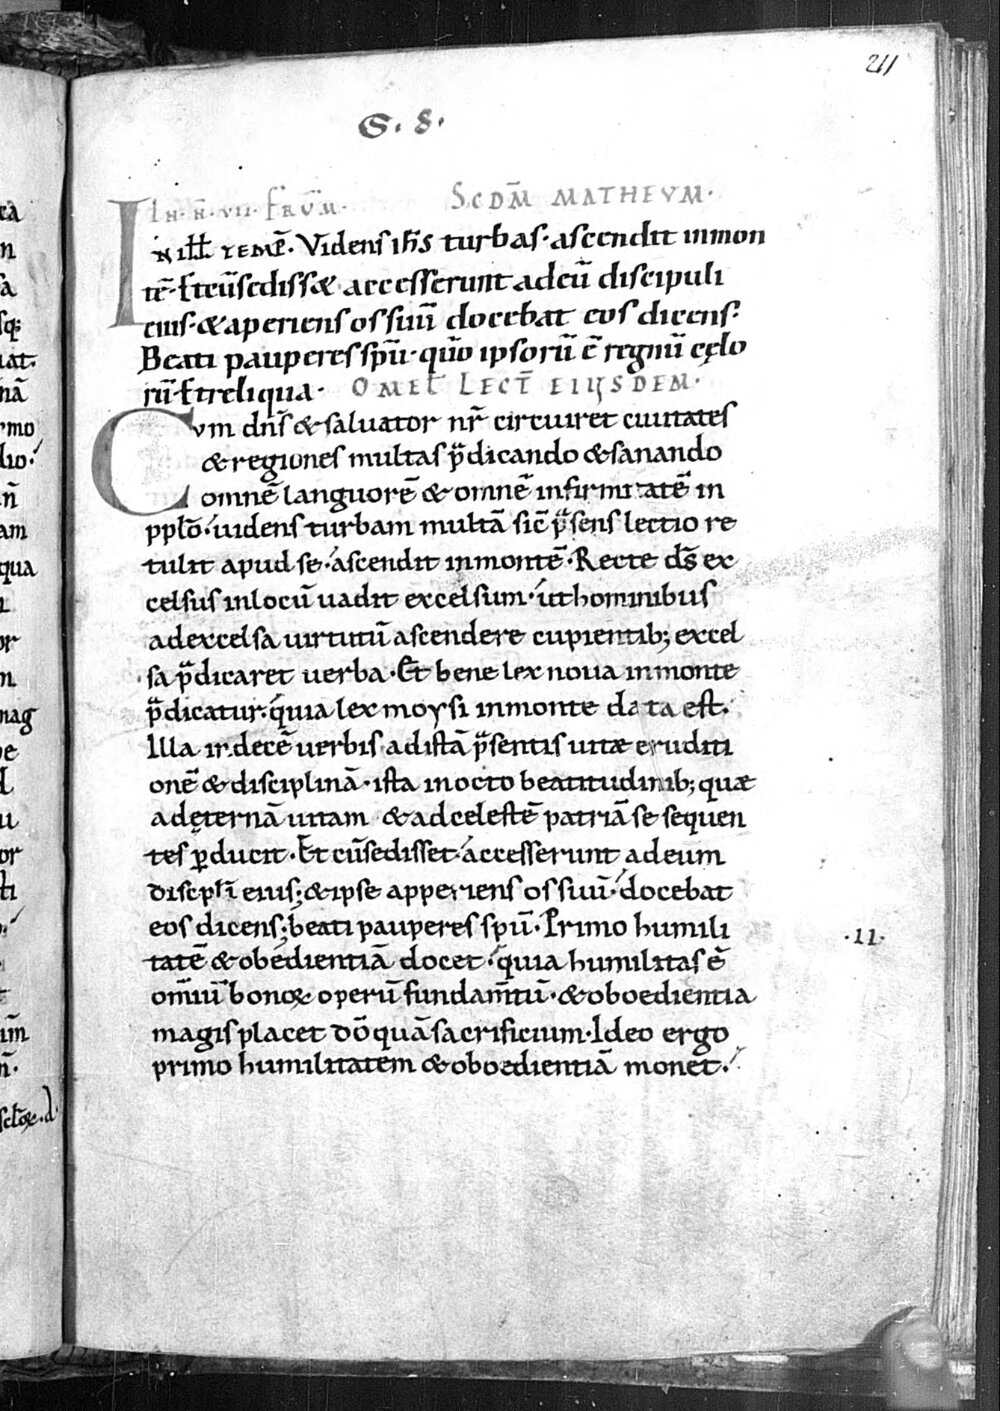 211
S. 8.
IN. N̄. VII. FRVM̄. SCDM̄ MATHEVM.
IN ILL̄ TEMP̄. Videns ih̄s turbas. ascendit inmon
tē. Et cū sedisset accesserunt adeū discipuli
eius. & aperiens os suū docebat eos dicens:
Beati pauperes sp̄u. quō ipsorū ē regnū cęlo
rū. Et reliqua. OMEL LECT̄ EIUSDEM.
Cvm dn̄s & saluator nr̄ circuiret ciuitates
& regiones multas p̄dicando & sanando
omnē languorē & omnē infirmitatē in
pplō. uidens turbam multā sic̄ p̄sens lectio re
tulit apud se. ascendit inmontē. Recte d̄s ex
celsus inlocū uadit excelsum. ut hominibus
adexcelsa uirtutū ascendere cupientib; excel
sa p̄dicaret uerba. Et bene lex noua inmonte
p̄dicatur. quia lex moysi inmonte data est.
Illa in decē uerbis adistā p̄sentis uitæ eruditi
onē & disciplinā. ista inocto beatitudinib; quæ
adęternā uitam & adcelestē patriā se sequen
tes ꝑducit. Et cū sedisset. accesserunt adeum
discpl̄i eius; & ipse apperiens os suū. docebat
eos dicens; beati pauperes sp̄u. Primo humili
tatē & obedientiā docet. quia humilitas ē
.II.
om̄iū bonoꝝ operū fundam̄tū. & oboedientia
magis placet dō quā sacrificium. Ideo ergo
primo humilitatem & oboedientiā monet.